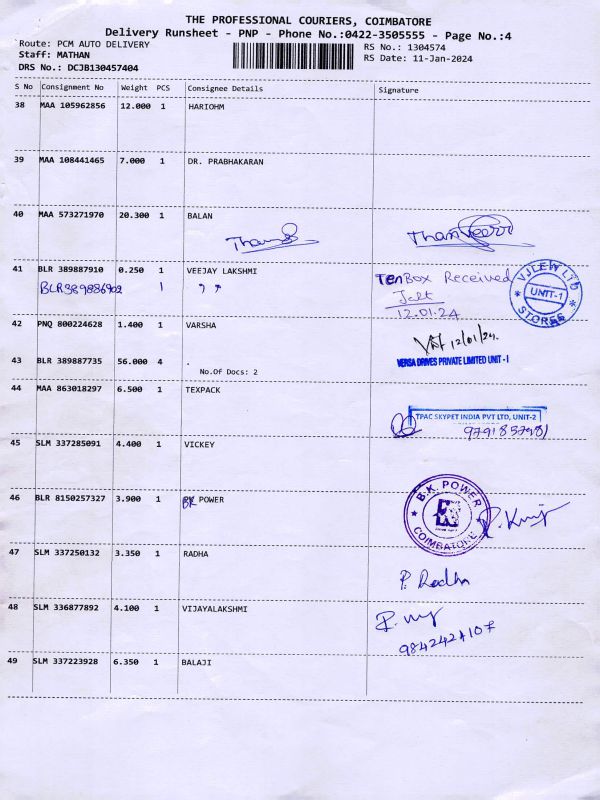 THE PROFESSIONAL COURIERS, COIMBATORE
Delivery Runsheet - PNP - Phone No.:0422-3505555 - Page No.:4
Route: PCM AUTO DELIVERY
RS No.: 1304574
Staff: MATHAN
RS Date: 11-Jan-2024
DRS No.: DCJB130457404
S No Consignment No Weight PCS Consignee Details Signature
38 MAA 105962856 12.000 1 HARIOHM
39 MAA 108441465 7.000 1 DR. PRABHAKARAN
40 MAA 573271970 20.300 1 BALAN
41 BLR 389887910 0.250 1 VEEJAY LAKSHMI
BLR389886902 1 " "
Ten Box Received
12.01.24
VJLEW LTD
UNIT-1
STORES
42 PNQ 800224628 1.400 1 VARSHA
12/01/24.
VERSA DRIVES PRIVATE LIMITED UNIT - I
43 BLR 389887735 56.000 4 .
No.Of Docs: 2
44 MAA 863018297 6.500 1 TEXPACK
TPAC SKYPET INDIA PVT LTD, UNIT-2
45 SLM 337285091 4.400 1 VICKEY
46 BLR 8150257327 3.900 1 BK POWER
B.K. POWER
COIMBATORE
47 SLM 337250132 3.350 1 RADHA
P. Radha
48 SLM 336877892 4.100 1 VIJAYALAKSHMI
9842424107
49 SLM 337223928 6.350 1 BALAJI